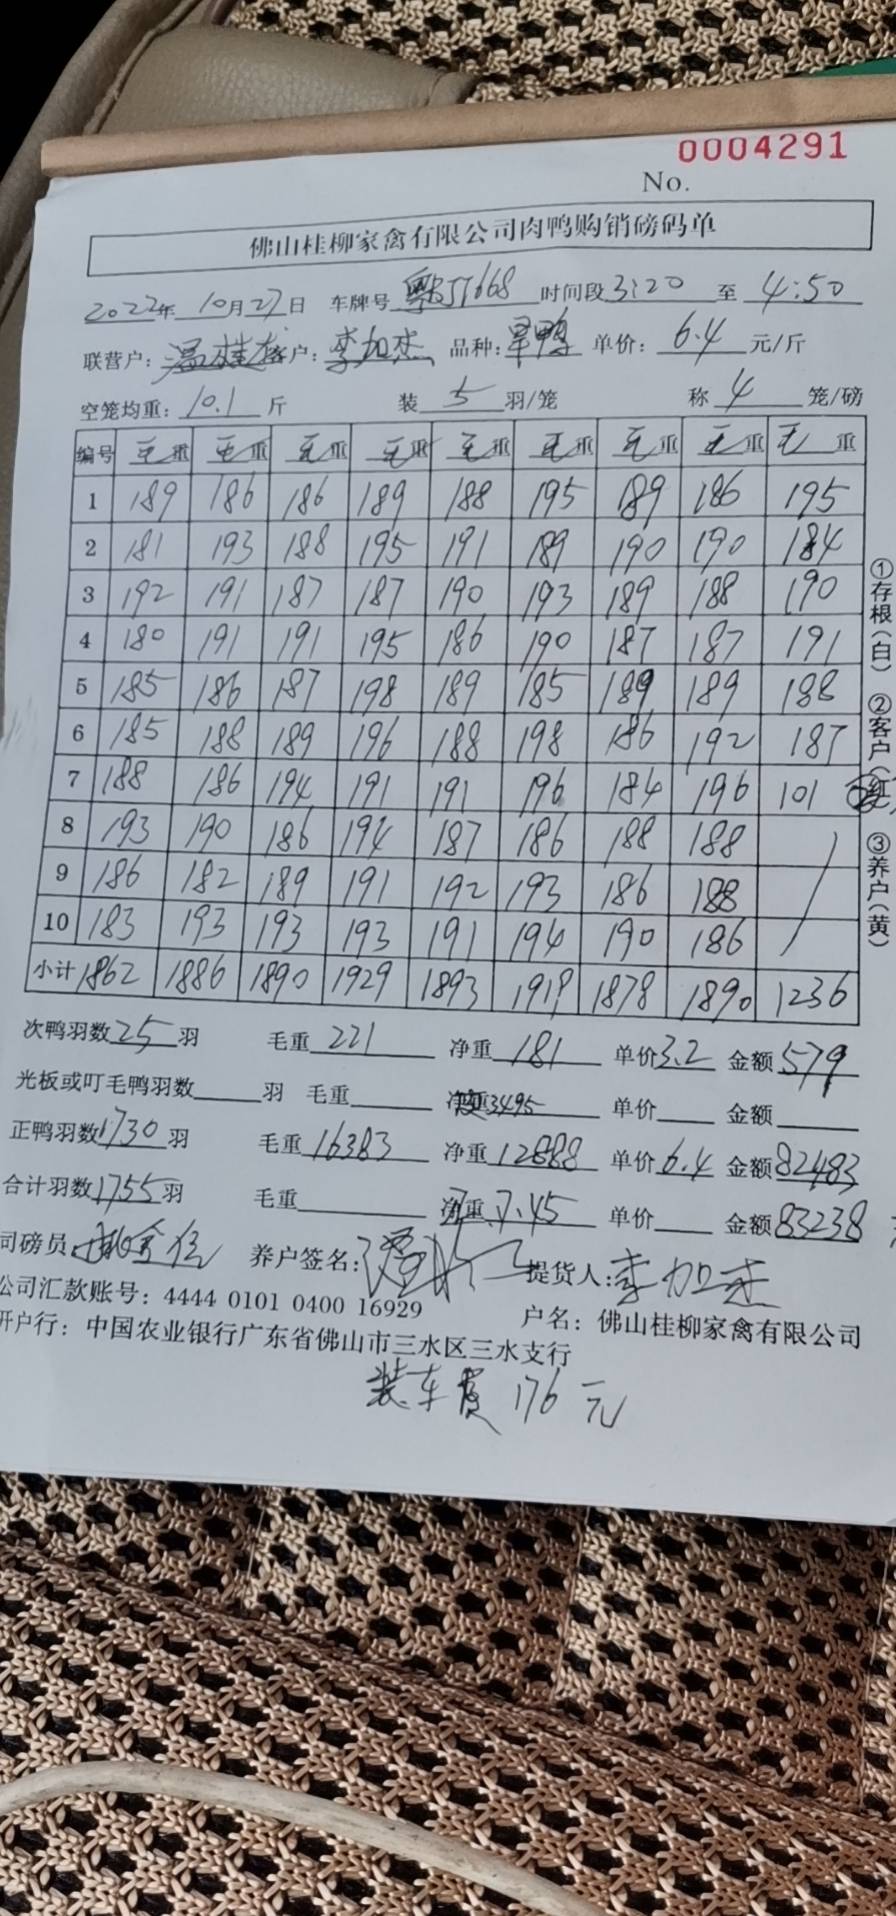 0004291
No.
佛山桂柳家禽有限公司肉鸭购销磅码单
2022年 10月27日 车牌号 时间段 3:20 至 4:50
联营户: 客户: 李加杰 品种: 旱鸭 单价: 6.4 元/斤
空笼均重: 10.1 斤 装 5 羽/笼 称 4 笼/磅
编号 毛重 毛重 毛重 毛重 毛重 毛重 毛重 毛重 毛重
1 189 186 186 189 188 195 189 186 195
2 181 193 188 195 191 189 190 190 184
3 192 191 187 187 190 193 189 188 190
4 180 191 191 195 186 190 187 187 191
5 185 186 187 198 189 185 189 189 188
6 185 188 189 196 188 198 186 192 187
7 188 186 194 191 191 196 184 196 101
8 193 190 186 194 187 186 188 188
9 186 182 189 191 192 193 186 188
10 183 193 193 193 191 194 190 186
小计 1862 1886 1890 1929 1893 1919 1878 1890 1236
①存根(白) ②客户(红) ③养户(黄)
次鸭羽数 25 羽 毛重 221 净重 181 单价 3.2 金额 579
光板或叮毛鸭羽数 羽 毛重 3495 单价 金额
正鸭羽数 1730 羽 毛重 16383 净重 12888 单价 6.4 金额 82483
合计羽数 1755 羽 毛重 7.45 单价 金额 83238
司磅员: 养户签名: 提货人: 李加杰
公司汇款账号: 4444 0101 0400 16929 户名: 佛山桂柳家禽有限公司
开户行: 中国农业银行广东省佛山市三水区三水支行
装车费 176 元